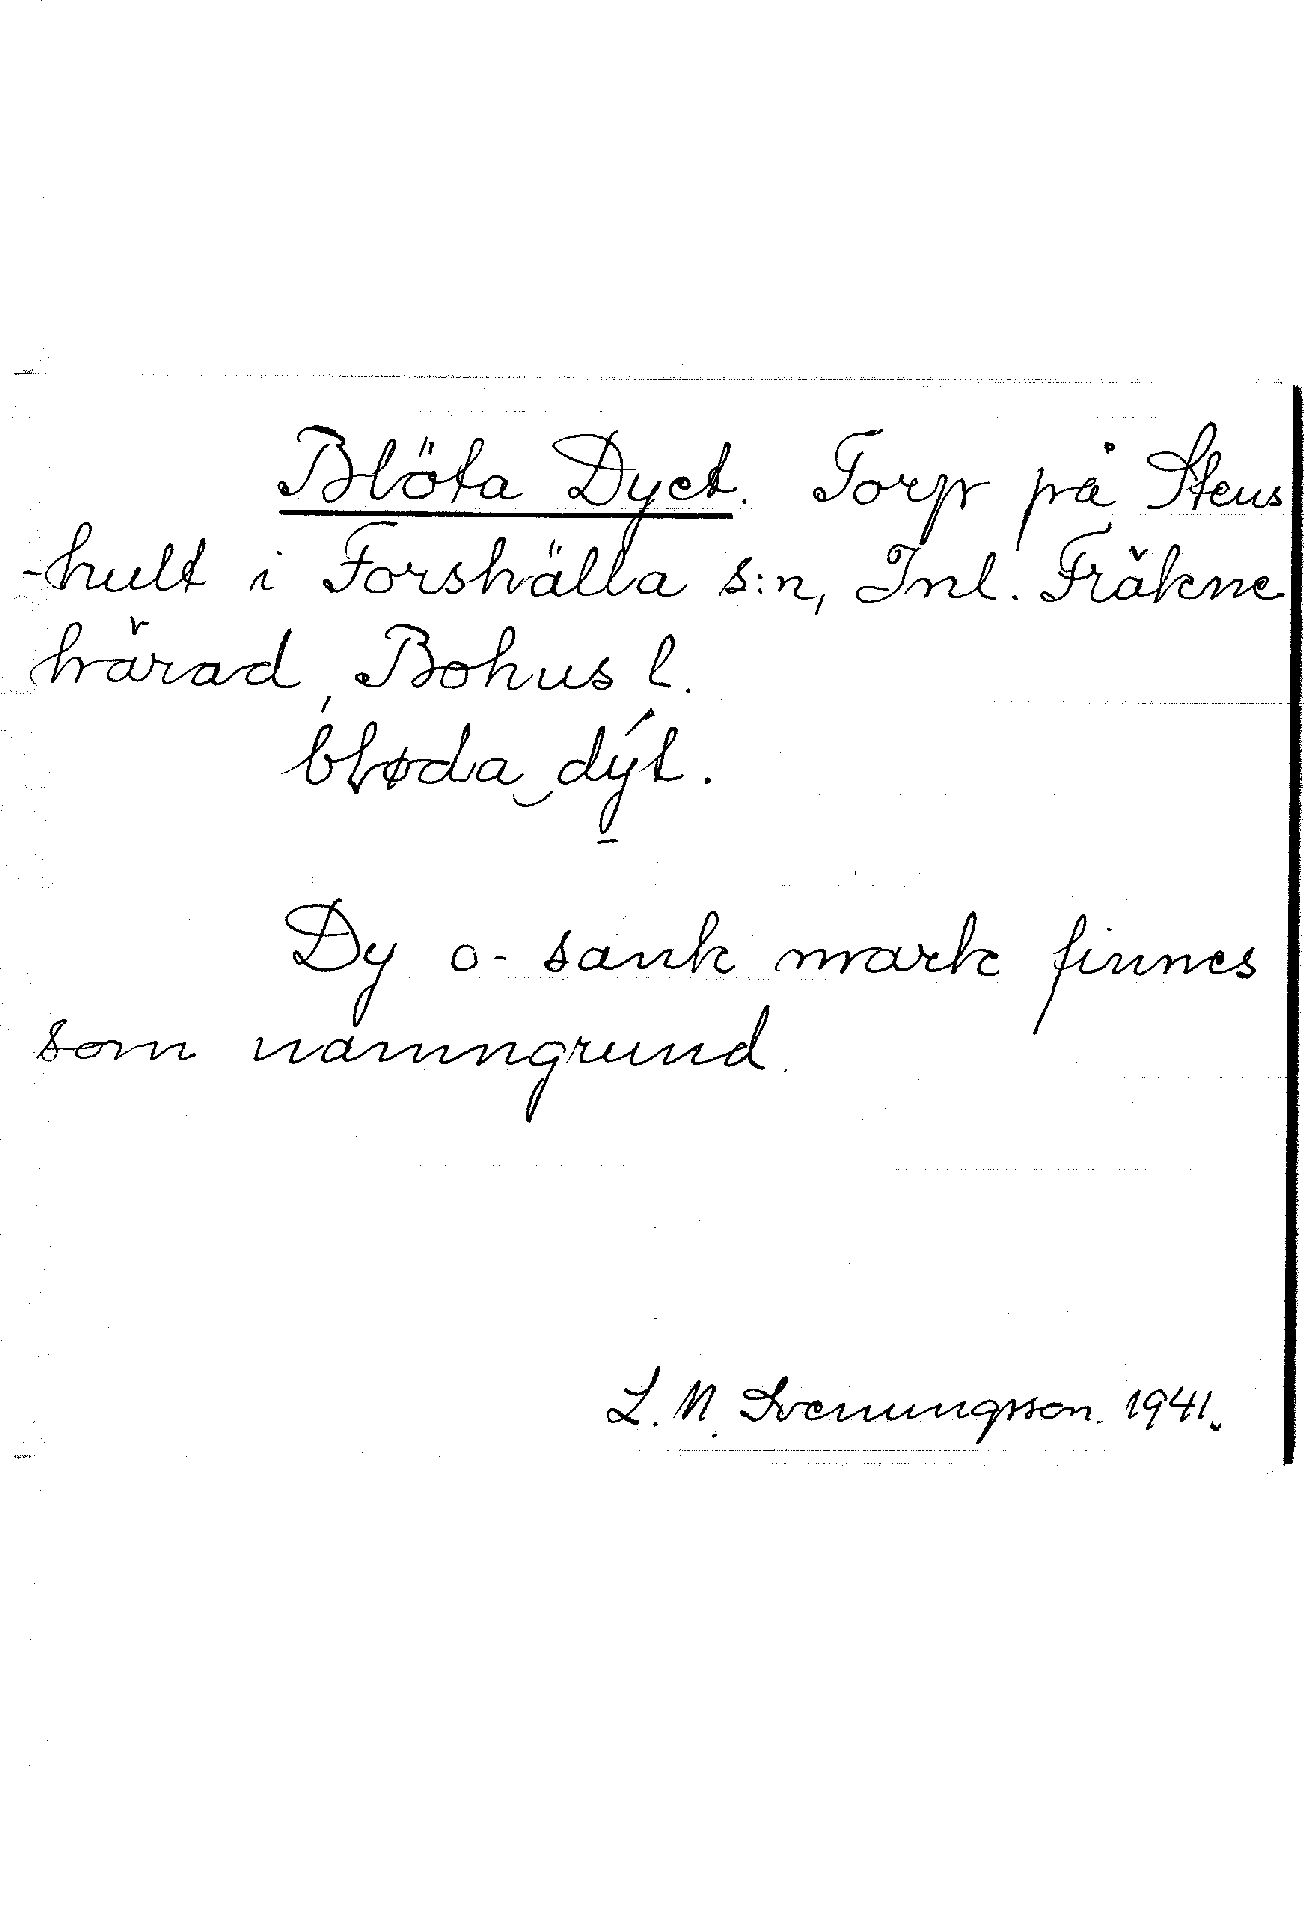 Blöta Dyet. Torp på Stens
-hult i Forshälla s:n, Inl. Fräkne
härad, Bohus l.
bløda‿dýt.
Dy o- sank mark finnes
som namngrund.
L. N. Svenungsson. 1941.